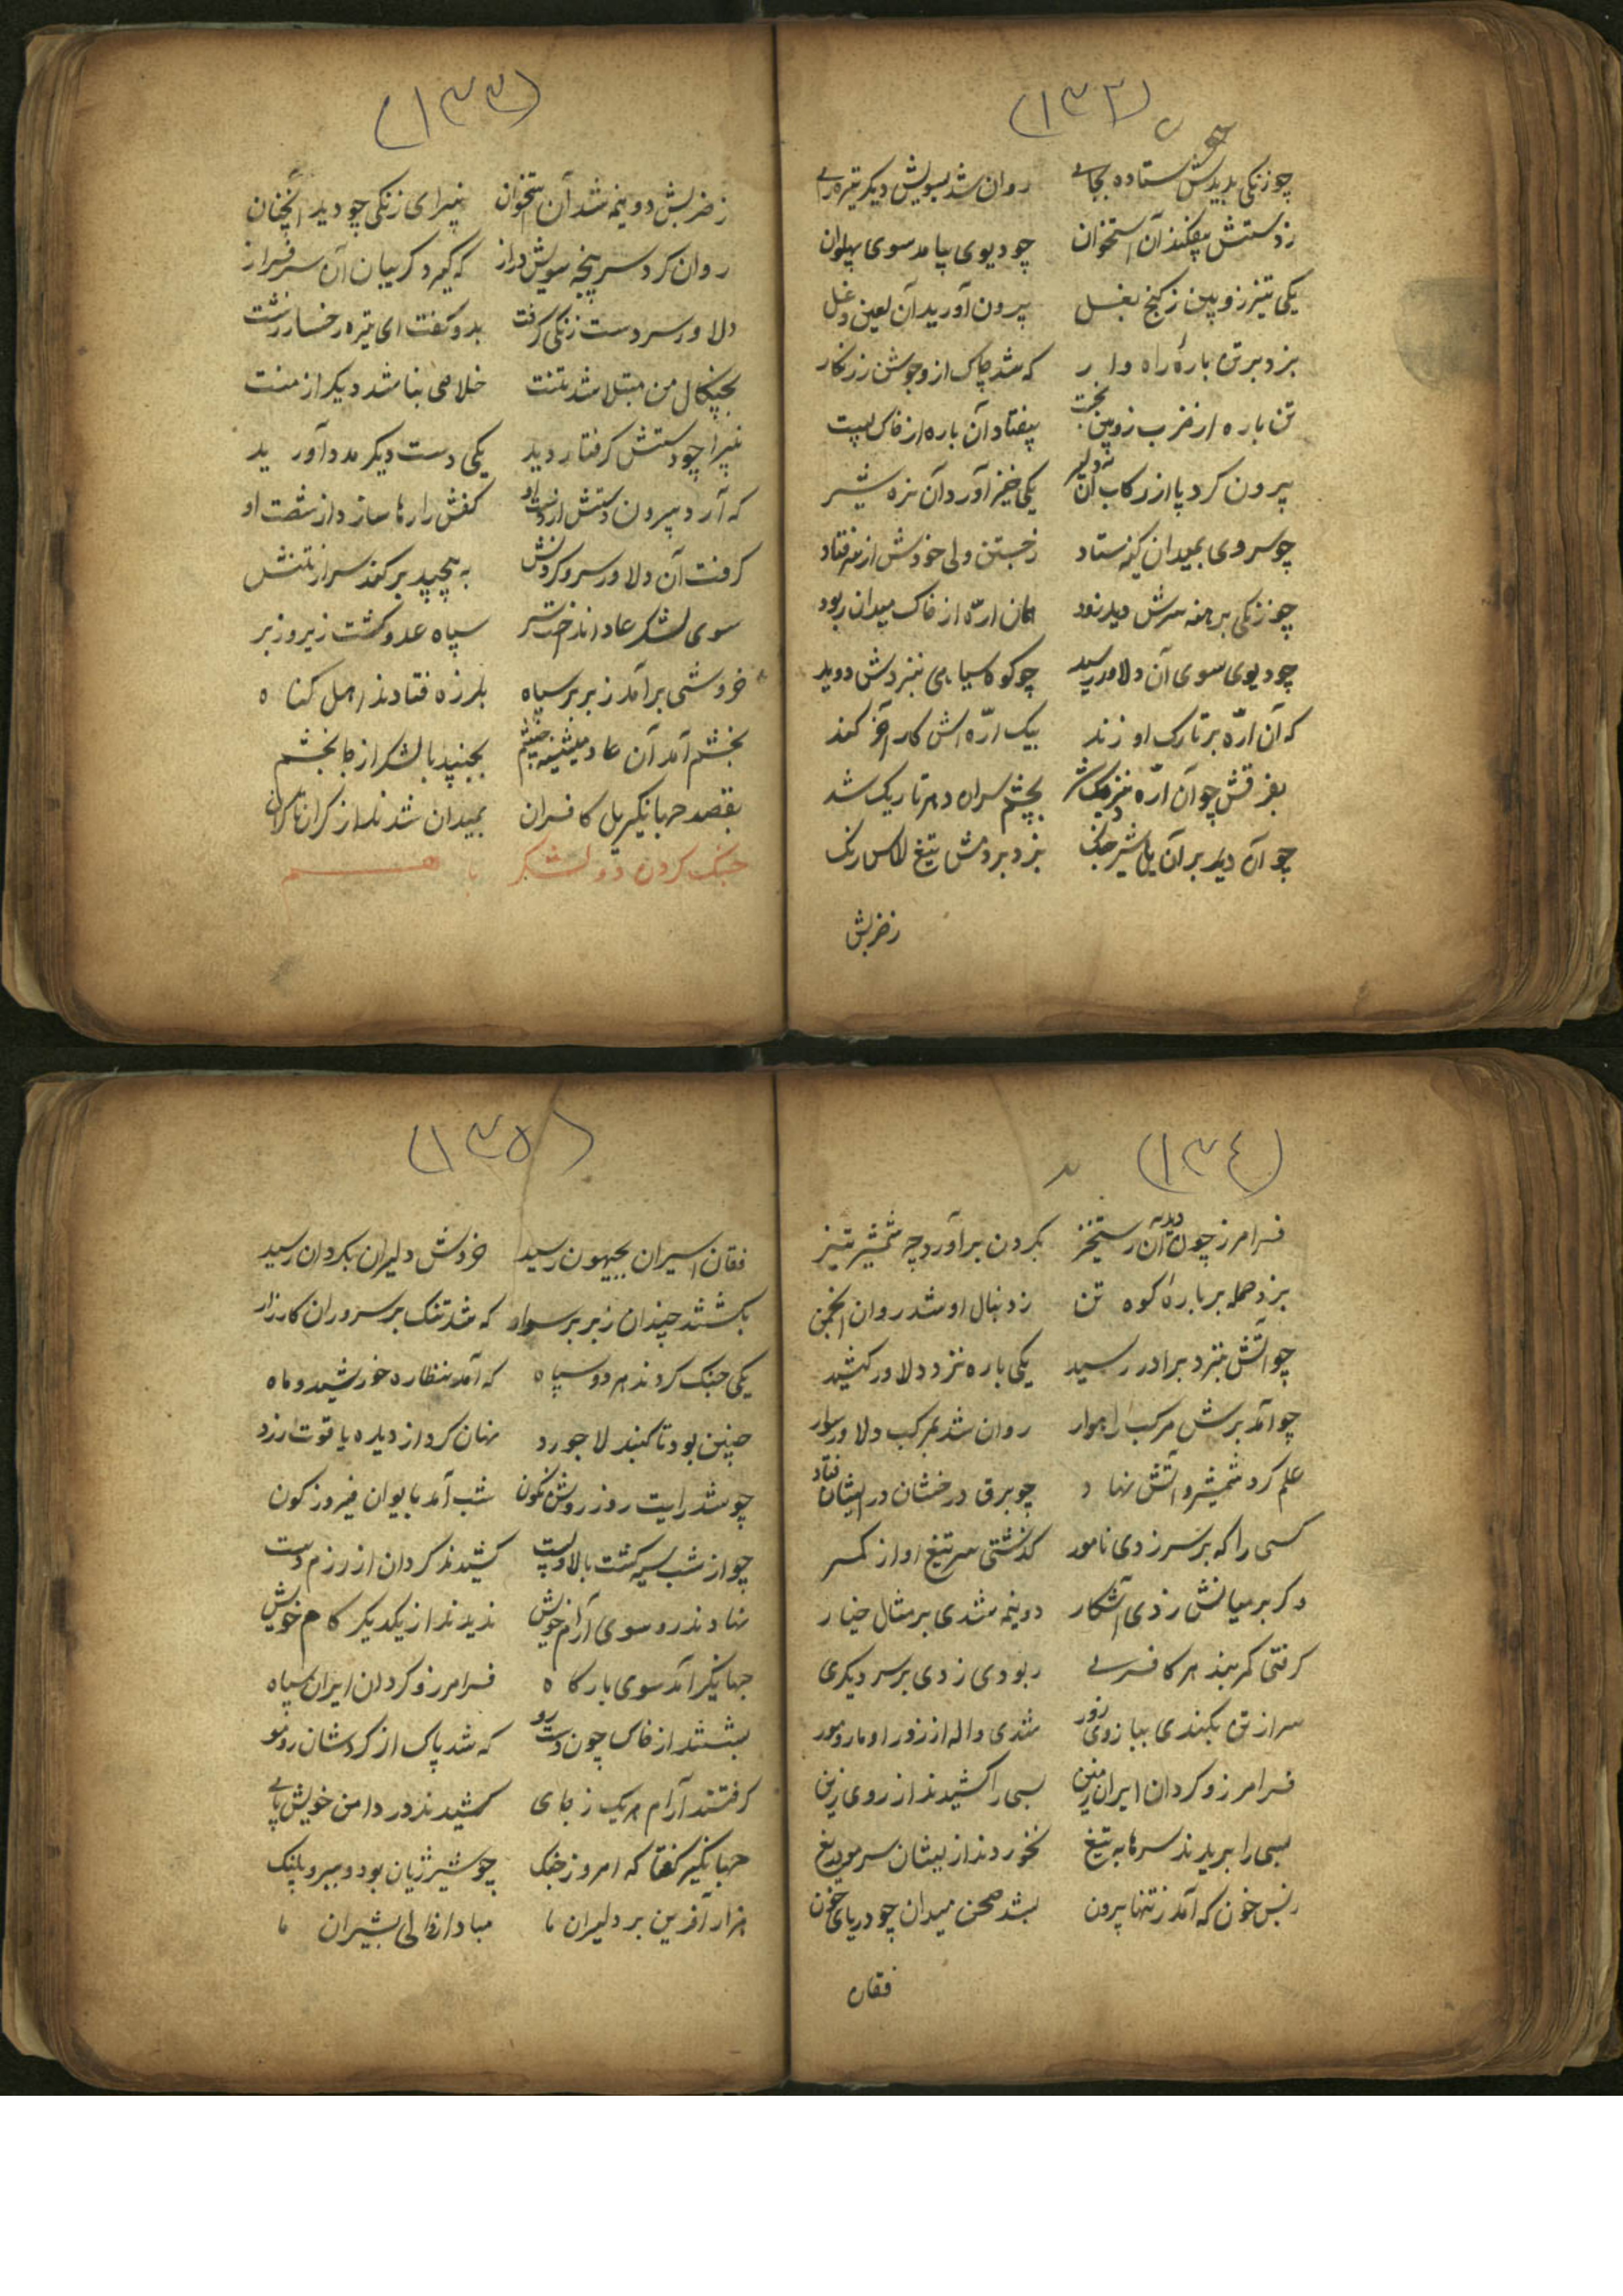 (۱۳۲)
چو زنکی بدیدش ستاده بجای روان شد بسویش دیکر تیره رای
ز دستش بیفکند آن استخوان چو دیوی بیامد سوی پهلوان
یکی تیز زوبین ز کنج بغل برون آورید آن لعین دغل
بزد بر تن بارۀ راه وار که شد چاک ازو جوشن زرنکار
تن باره از ضرب زوبین بخت بیفتاد آن باره از خاک پست
برون کرد پا از رکاب آن دلیر یکی خیز آورد آن نره شیر
چو سروی بمیدان کینه ستاد ز جستن ولی خودش از سر فتاد
چو زنکی برهنه سرش دید زود همان ارّه از خاک میدان ربود
چو دیوی سوی آن دلاور رسید چو کوه سیاهی بنزدش دوید
که آن ارّه بر تارک او زند بیک ارّه اش کار آخر کند
بفرقش چو آن ارّه نزدیک شد بچشم سران دهر تاریک شد
چو آن دید بر آن یل شیر جنک بزد بر دمش تیغ الماس رنک
ز ضربش
(۱۳۳)
ز ضربش دو نیمه شد آن استخوان نیرای زنکی چو دید آنچنان
روان کرد سر پنجه سویش دراز که کیرد کریبان آن سرفراز
دلاور سر دست زنکی کرفت بدو کفت ای تیره رخسار زشت
بچنکال من مبتلا شد تنت خلاصی نباشد دیکر از منت
نیرا چو دستش کرفتار دید یکی دست دیکر مدد آورید
که آرد برون دستش از دست او کفش را رها سازد از شصت او
کرفت آن دلاور سر و کردنش به پیچید بر کند سر از تنش
سوی لشکر عاد انداخت سر سپاه عدو کشت زیر و زبر
خروشی بر آمد ز بربر سپاه بلرزه فتادند اهل کناه
بخشم آمد آن عاد میشینه چشم بجنبید با لشکر از جا بخشم
بقصد جهانکیر یل کافران بمیدان شدند از کران تا کران
جنک کردن دو لشکر با هم
(۱۳۴)
فرامرز چون دید آن رستخیز بکردن بر آورد چه شمشیر تیز
بزد حمله بر بارۀ کوه تن ز دنبال او شد روان انجمن
چو آتش بنزد برادر رسید یکی باره نزد دلاور کشید
چو آمد برش مرکب راهوار روان شد بمرکب دلاور سوار
علم کرد شمشیر و آتش نهاد چو برق درخشان در ایشان فتاد
کسی را که بر سر زدی نامور کذشتی سر تیغ او از کمر
و کر بر میانش زدی آشکار دو نیمه شدی بر مثال خیار
کرفتی کمر بند هر کافری ربودی زدی بر سر دیکری
سر از تن بکندی ببازوی زور شدی واله از زور او مار و مور
فرامرز و کردان ایران زمین بسی را کشیدند از روی زین
بسی را بریدند سرها به تیغ نخوردند از بیشان سر مو دریغ
ز بس خون که آمد ز تنها برون بشد صحن میدان چو دریای خون
فقان
(۱۳۵)
فقان اسیران بجیهون رسید خروش دلیران بکردان رسید
بکشتند چندان ز بربر سوار که شد تنک بر سروران کارزار
یکی جنک کردند هر دو سپاه که آمد بنظاره خورشید و ماه
چنین بود تا کنبد لاجورد نهان کرد از دیده یاقوت زرد
چو شد رایت روز روشن نکون شب آمد بایوان فیروزکون
چو از شب سیه کشت بالا و پست کشیدند کردان از رزم دست
نهادند رو سوی آرام خویش ندیدند از یکدیکر کام خویش
جهانکیر آمد سوی بارکاه فرامرز و کردان ایران سپاه
بشستند از خاک چون دست و رو که شد پاک از کردشان رو و مو
کرفتند آرام هر یک ز جای کشیدند در دامن خویش پای
جهانکیر کفتا که امروز جنک چو شیر ژیان بود و ببر و پلنک
هزار آفرین بر دلیران ما مبادا زوالی بشیران ما